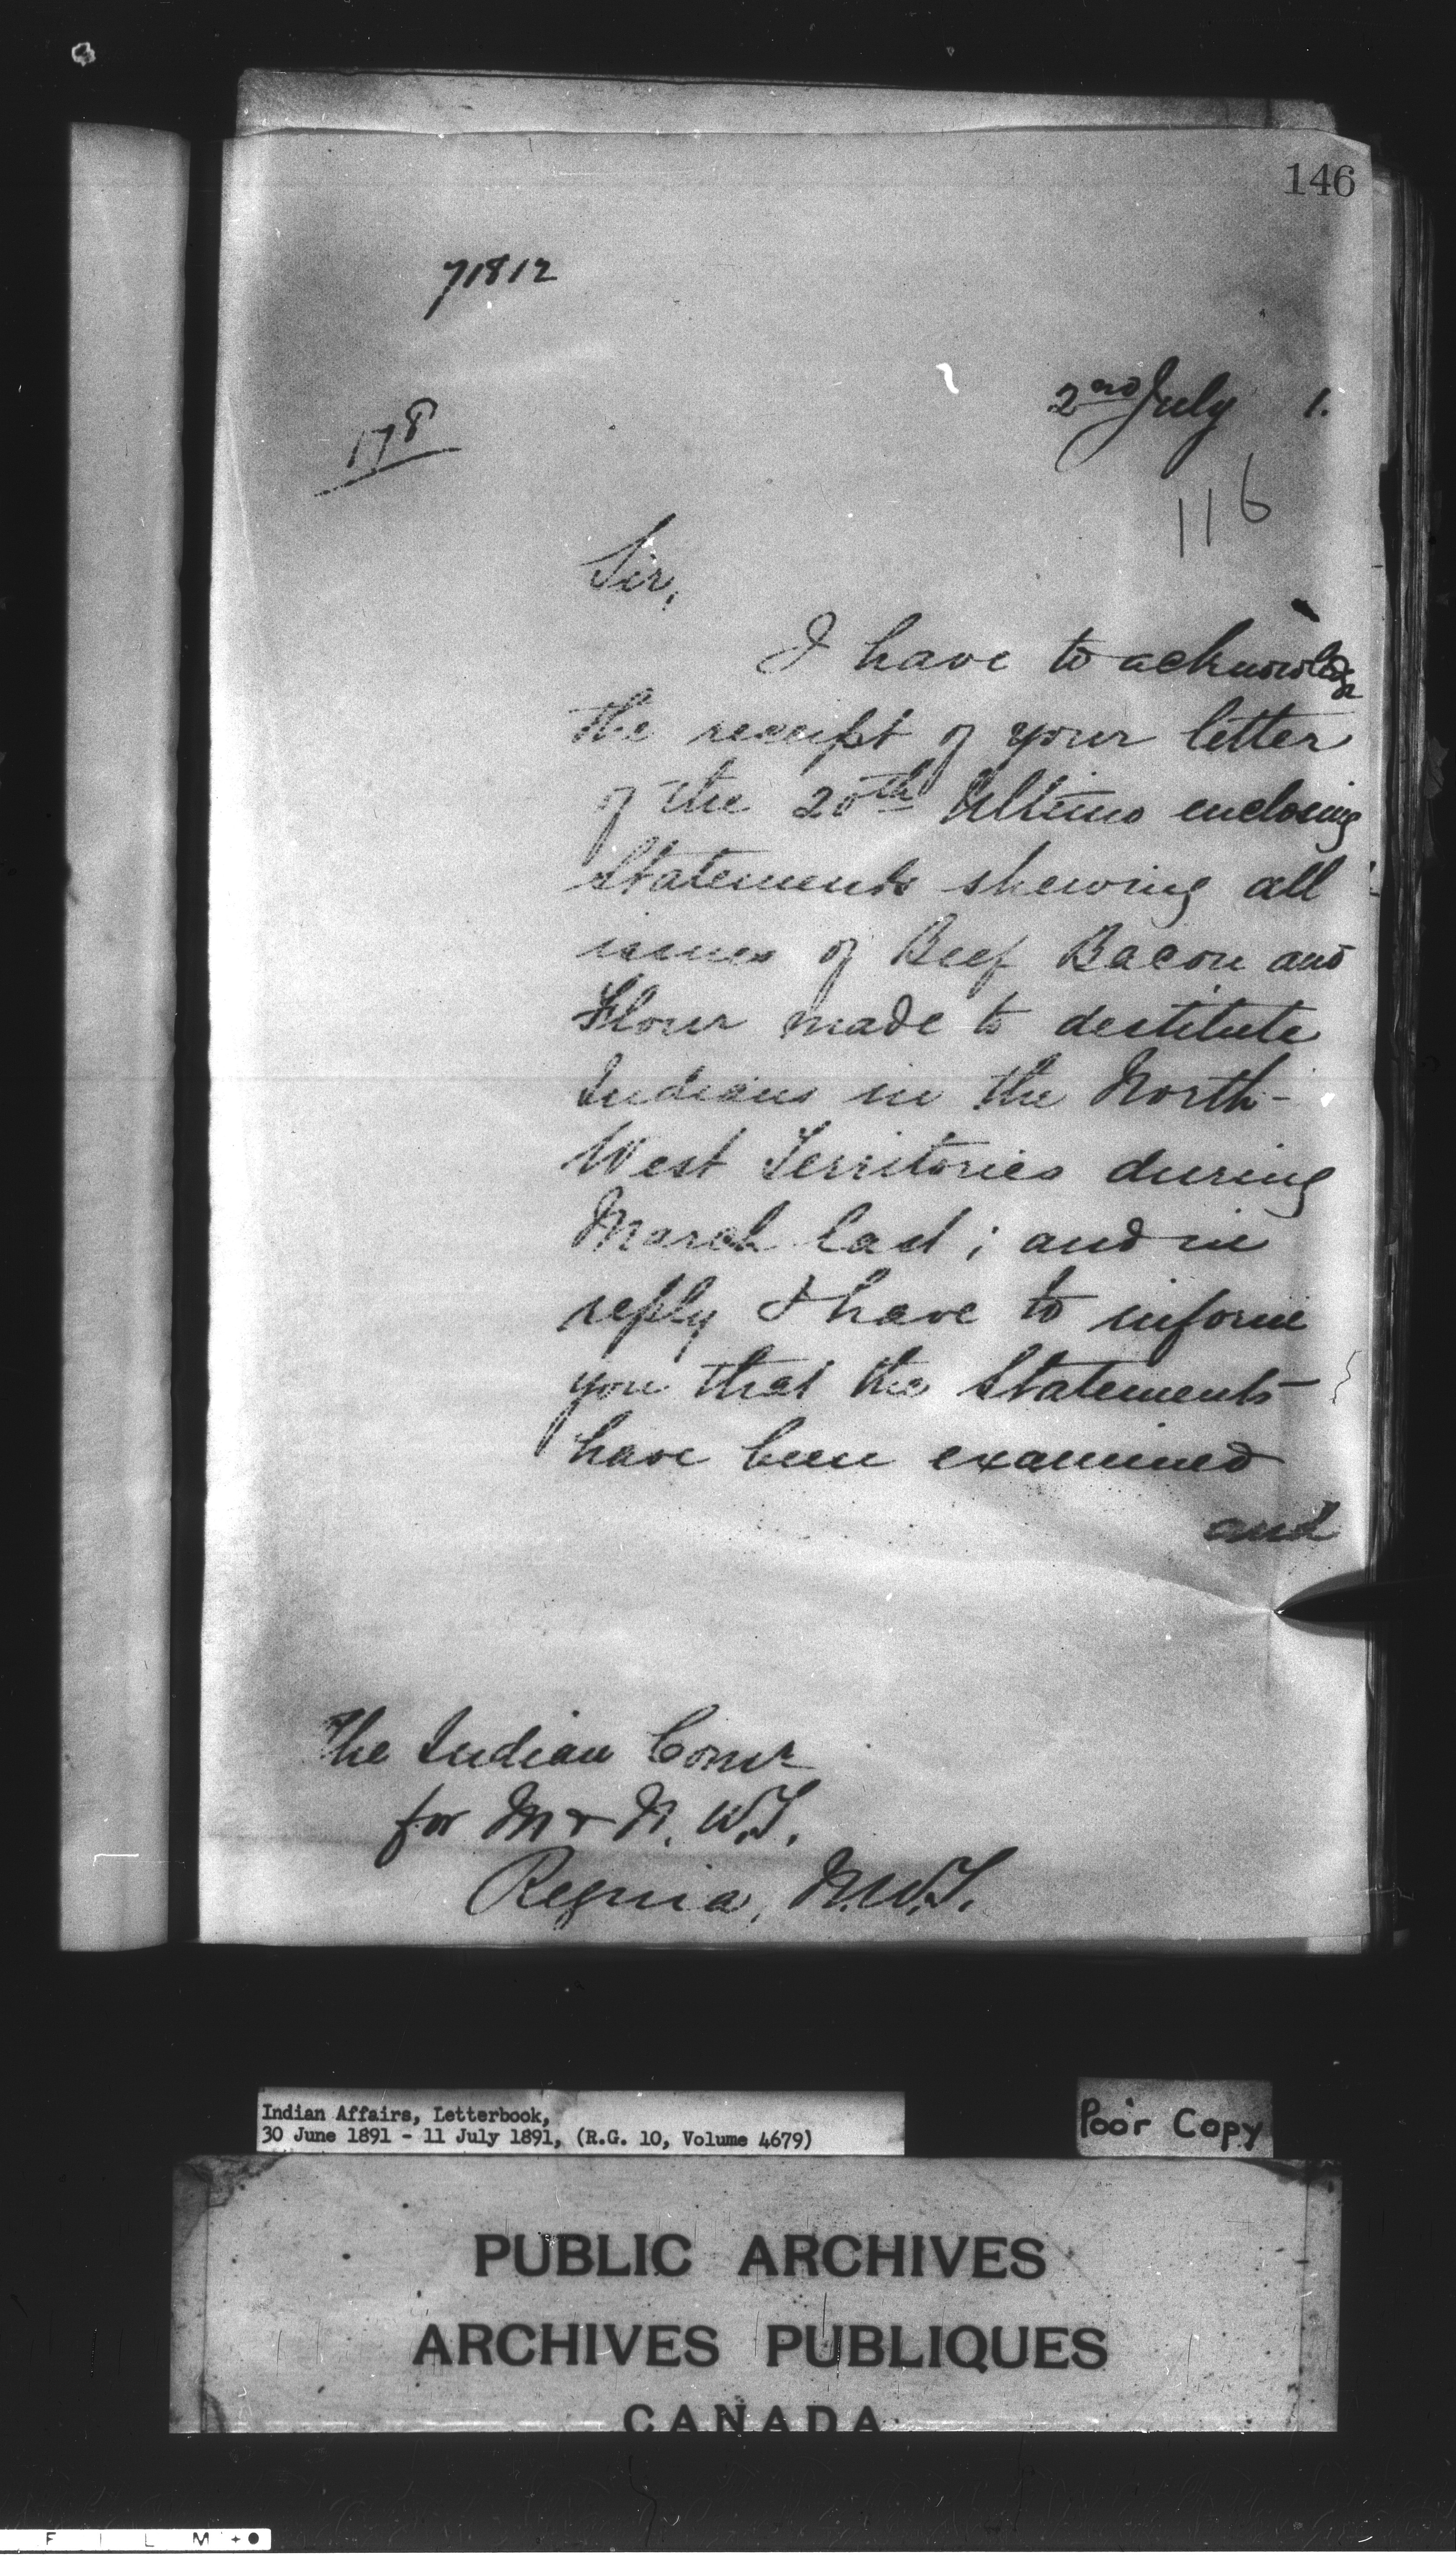 146
71812
2nd July 1.
178
116
Sir,
I have to acknowledge
the receipt of your letter
of the 20th Ultimo enclosing
Statements shewing all
issues of Beef Bacon and
Flour made to destitute
Indians in the North-
West Territories during
March last; and in
reply I have to inform
you that the Statements
have been examined
and
The Indian Comr
for M & N. W. T.
Regina, N.W.T.
Indian Affairs, Letterbook,
30 June 1891 - 11 July 1891, (R.G. 10, Volume 4679)
Poor Copy
PUBLIC ARCHIVES
ARCHIVES PUBLIQUES
CANADA
FILM